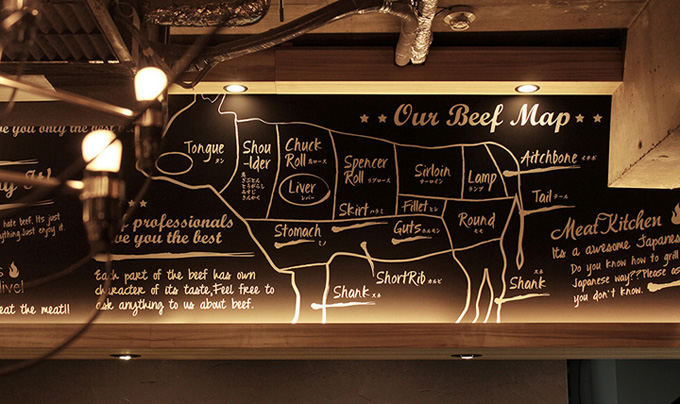 Our Beef Map
ve you only the best
hate beef. Its just
anything. Just enjoy it.
live!
eat the meat!!
professionals
ve you the best
Each part of the beef has own
character of its taste, Feel free to
ask anything to us about beef.
Tongue
タン
Shou
-lder
Chuck
Roll 肩ロース
Liver
レバー
Spencer
Roll リブロース
Skirt ハラミ
Sirloin
サーロイン
Fillet ヒレ
Lamp
ランプ
Round
モモ
Stomach ミノ
Guts ホルモン
ShortRib カルビ
Shank スネ
Shank スネ
Aitchbone イチボ
Tail テール
MeatKitchen
Its a awesome Japanese
Do you know how to grill
Japanese way??Please as
you don't know.